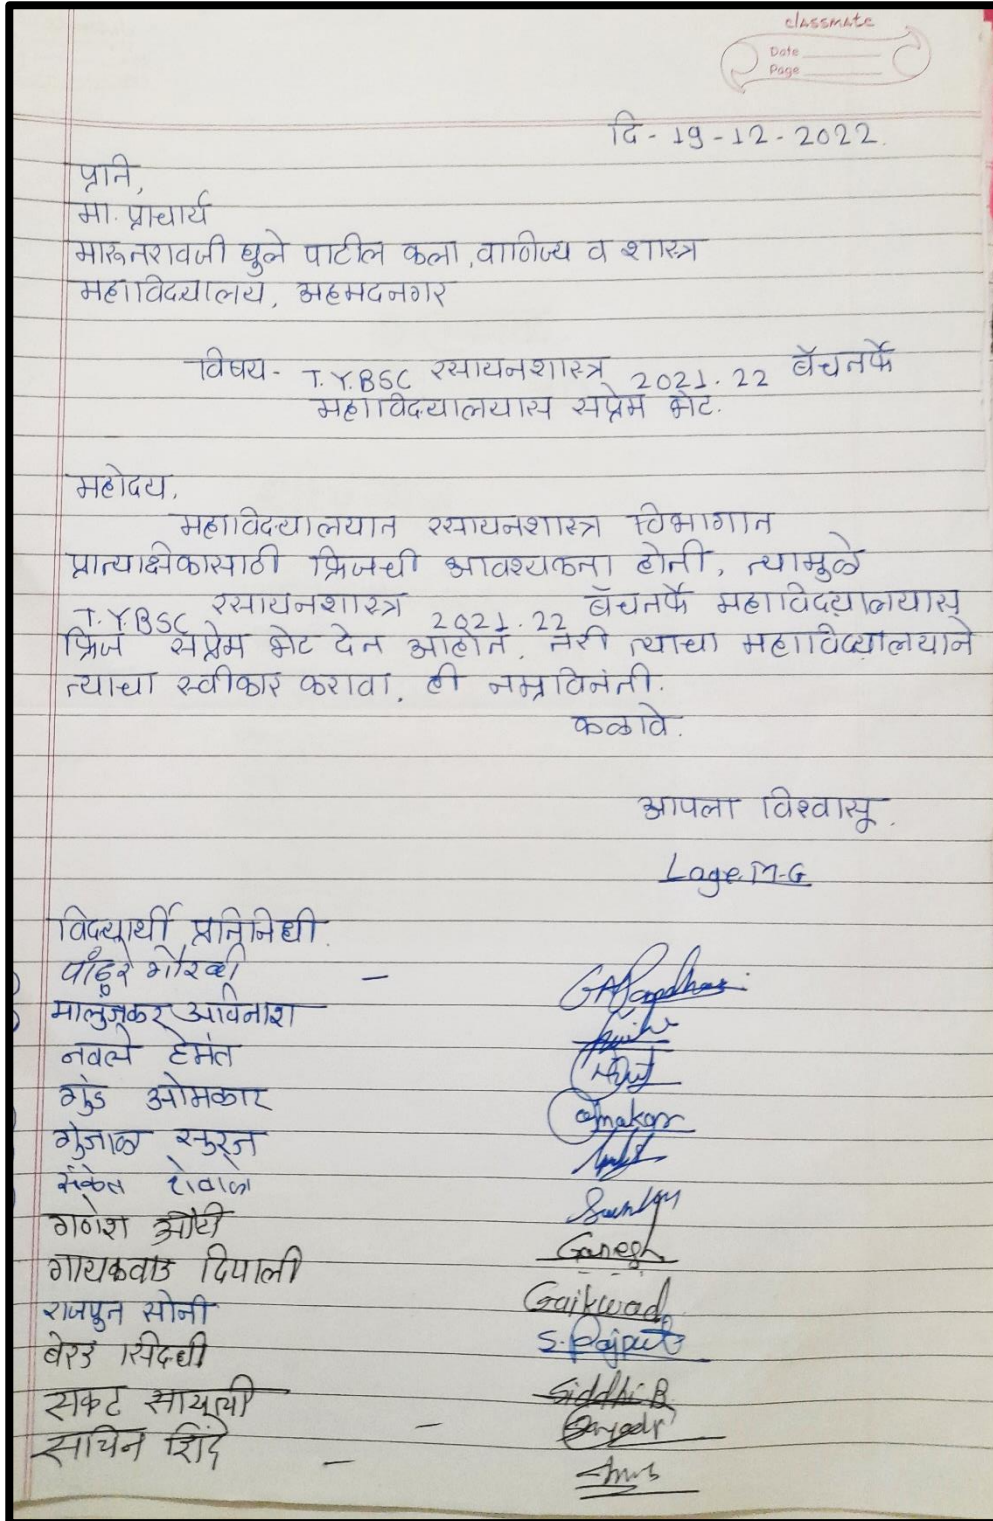 classmate
Date
Page
दि - 19 - 12 - 2022.
प्रति,
मा. प्राचार्य
मारूतरावजी घुले पाटील कला, वाणिज्य व शास्त्र
महाविदयालय, अहमदनगर
विषय - T.Y.BSC रसायनशास्त्र 2021.22 बॅचतर्फे
महाविदयालयास सप्रेम भेट.
महोदय,
महाविदयालयात रसायनशास्त्र विभागात
प्रात्याक्षिकासाठी फ्रिजची आवश्यकता होती, त्यामुळे
T.Y.BSC रसायनशास्त्र 2021.22 बॅचतर्फे महाविदयालयास
फ्रिज सप्रेम भेट देत आहोत, तरी त्याचा महाविद्यालयाने
त्याचा स्वीकार करावा, ही नम्रविनंती.
कळावे.
आपला विश्वासू.
Lage.M-G
विदयार्थी प्रतिनिधी.
गौरव -
मालुंजकर अविनाश
नवले हेमंत
गुंड ओमकार Omakar
गुंजाळ सुरज
संकेत शेवाळे
गणेश औटी Ganesh
गायकवाड दिपाली Gaikwad
राजपुत सोनी S.Rajput
बेरड सिदधी Siddhi.B
सकट सायली -
सचिन शिंदे -